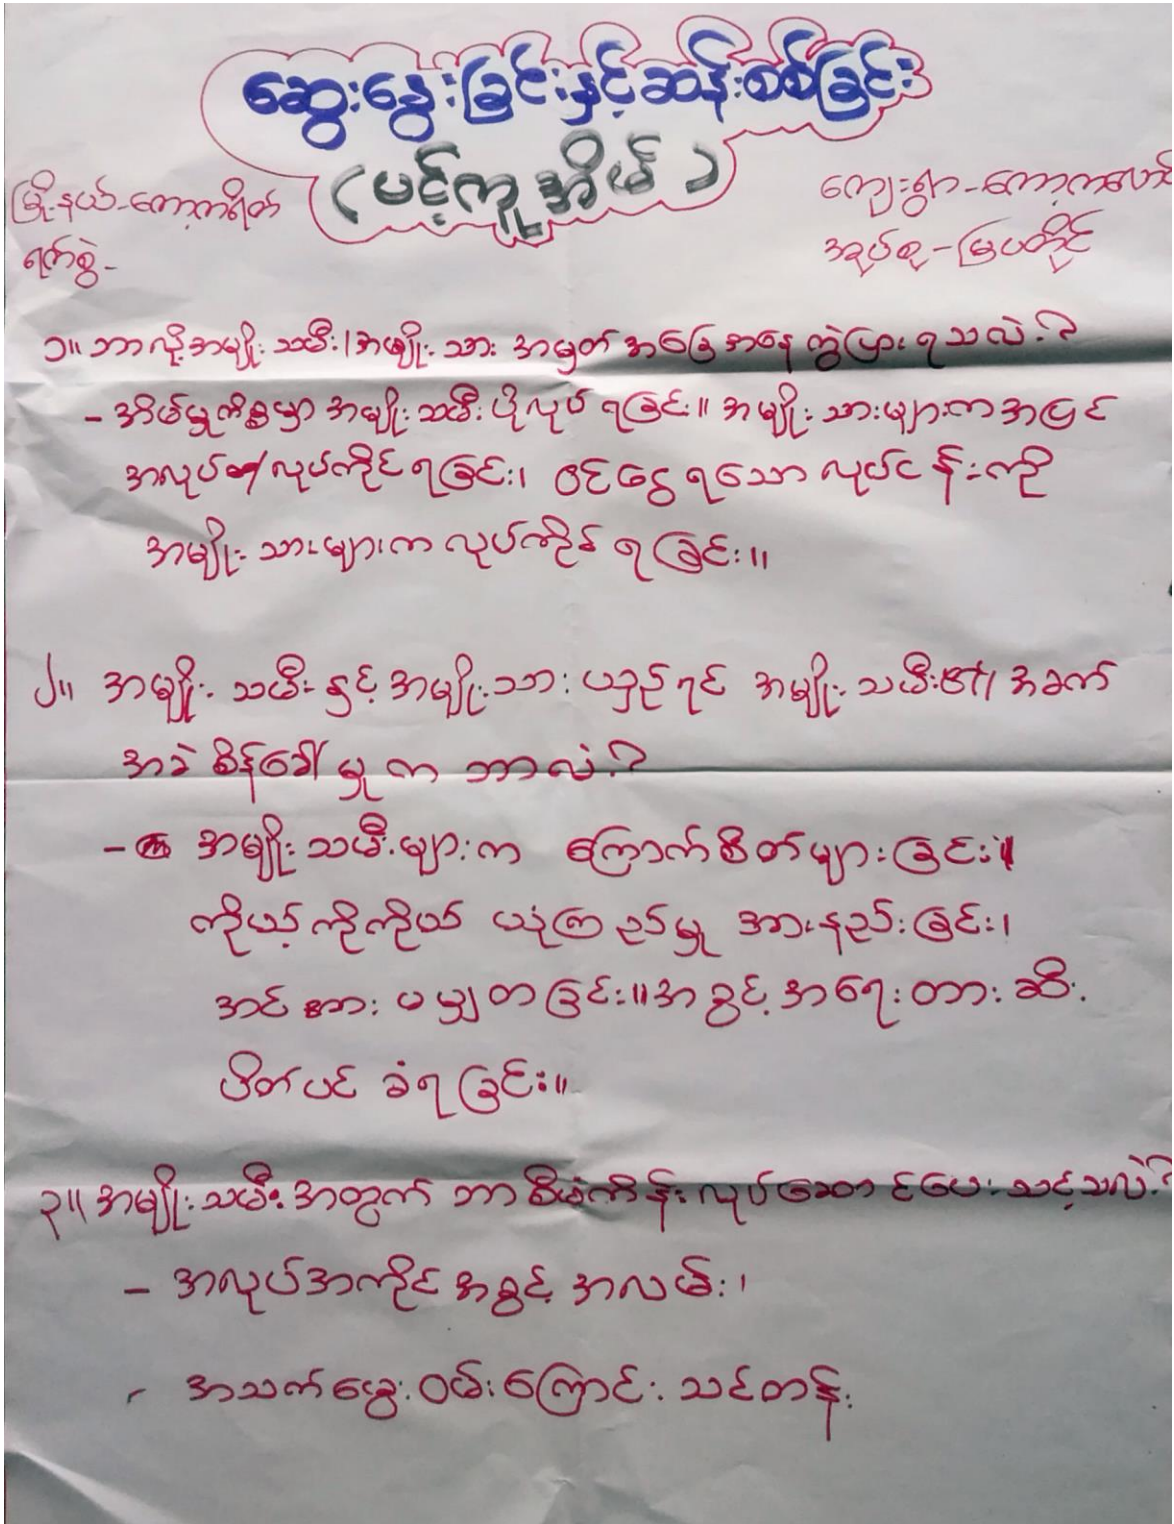 ဆွေးနွေးခြင်းနှင့်ဆန်းစစ်ခြင်း
(မင့်ကူအိမ်)
မြို့နယ်-ကော့ကရိတ်
ကျေးရွာ-ကော့ကပေါက်
ရက်စွဲ-
အုပ်စု-မြပတိုင်
၁။ ဘာလို့အမျိုးသမီး/အမျိုးသား အမှတ် အခြေအနေ ကွဲပြားရသလဲ?
- အိမ်မှုကိစ္စမှာ အမျိုးသမီး ပိုလုပ် ရခြင်း။ အမျိုးသားများက အပြင်
အလုပ် လုပ်ကိုင် ရခြင်း၊ ဝင်ငွေရသော လုပ်ငန်းကို
အမျိုးသားများက လုပ်ကိုင် ရခြင်း။
၂။ အမျိုးသမီးနှင့် အမျိုးသား ယှဉ်ရင် အမျိုးသမီး၏ အခက်
အခဲ စိန်ခေါ်မှု က ဘာလဲ?
- အမျိုးသမီးများက ကြောက်စိတ်များခြင်း။
ကိုယ့်ကိုကိုယ် ယုံကြည်မှု အားနည်းခြင်း၊
အင်အား မမျှတခြင်း။ အခွင့်အရေး တားဆီး
ပိတ်ပင် ခံရခြင်း။
၃။ အမျိုးသမီးအတွက် ဘာစီမံကိန်းလုပ်ဆောင်ပေးသင့်သလဲ?
- အလုပ်အကိုင်အခွင့်အလမ်း၊
- အသက်မွေးဝမ်းကြောင်း သင်တန်း